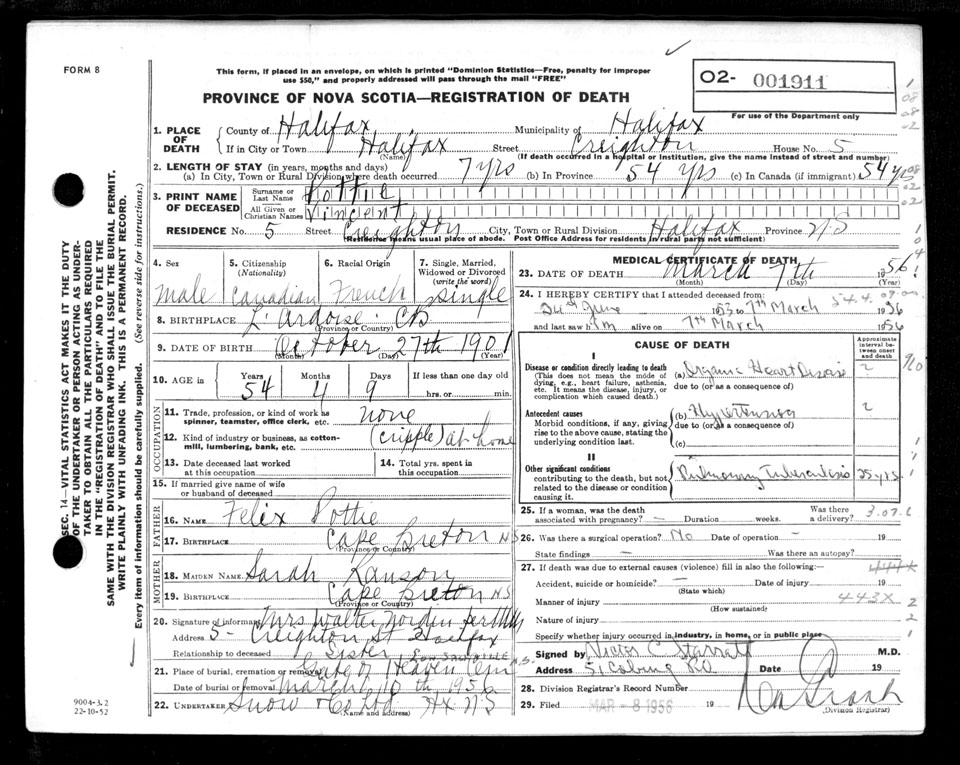 FORM 8
This form, if placed in an envelope, on which is printed "Dominion Statistics—Free, penalty for improper
use $50," and properly addressed will pass through the mail "FREE"
O2- 001911
For use of the Department only
PROVINCE OF NOVA SCOTIA—REGISTRATION OF DEATH
1. PLACE OF DEATH { County of Halifax Municipality of Halifax
If in City or Town Halifax (Name) Street Creighton House No. 5
(If death occurred in a hospital or institution, give the name instead of street and number)
2. LENGTH OF STAY (in years, months and days)
(a) In City, Town or Rural Division where death occurred 7 yrs (b) In Province 54 yrs (c) In Canada (if immigrant) 54 yrs
3. PRINT NAME OF DECEASED { Surname or Last Name Pottie
All Given or Christian Names Vincent
RESIDENCE No. 5 Street Creighton City, Town or Rural Division Halifax Province NS
(Residence means usual place of abode. Post Office Address for residents in rural parts not sufficient)
4. Sex male
5. Citizenship (Nationality) Canadian
6. Racial Origin French
7. Single, Married, Widowed or Divorced (write the word) single
8. BIRTHPLACE L'Ardoise CB
(Province or Country)
9. DATE OF BIRTH October 27th 1901
(Month) (Day) (Year)
10. AGE in { Years 54 Months 4 Days 9 If less than one day old hrs. or min.
OCCUPATION
11. Trade, profession, or kind of work as spinner, teamster, office clerk, etc. none
12. Kind of industry or business, as cotton-mill, lumbering, bank, etc. (cripple) at home
13. Date deceased last worked at this occupation
14. Total yrs. spent in this occupation
15. If married give name of wife or husband of deceased
FATHER
16. NAME Felix Pottie
17. BIRTHPLACE Cape Breton NS
(Province or Country)
MOTHER
18. MAIDEN NAME Sarah Ranson
19. BIRTHPLACE Cape Breton NS
(Province or Country)
20. Signature of informant Mrs Walter Norden
Address 5- Creighton St Halifax
Relationship to deceased Sister
21. Place of burial, cremation or removal Gate of Heaven Cem SACKVILLE N.S.
Date of burial or removal March 10th 1956
22. UNDERTAKER Snow & Co Ltd Hx NS
(Name and address)
MEDICAL CERTIFICATE OF DEATH
23. DATE OF DEATH March 7th 1956
(Month) (Day)
24. I HEREBY CERTIFY that I attended deceased from:
June 1953 to 7th March 1956
and last saw him alive on 7th March 1956
CAUSE OF DEATH
Approximate interval between onset and death
I
Disease or condition directly leading to death
(This does not mean the mode of dying, e.g., heart failure, asthenia, etc. It means the disease, injury, or complication which caused death.)
(a) Organic Heart Disease 2
due to (or as a consequence of)
Antecedent causes
Morbid conditions, if any, giving rise to the above cause, stating the underlying condition last.
(b) Hypertension 2
due to (or as a consequence of)
(c)
II
Other significant conditions
contributing to the death, but not related to the disease or condition causing it.
Pulmonary Tuberculosis 25 yrs
25. If a woman, was the death associated with pregnancy? — Duration weeks. Was there a delivery?
26. Was there a surgical operation? No Date of operation — 19
State findings — Was there an autopsy?
27. If death was due to external causes (violence) fill in also the following:—
Accident, suicide or homicide? — Date of injury 19
(State which)
Manner of injury 443X
(How sustained)
Nature of injury
Specify whether injury occurred in industry, in home, or in public place
Signed by Victor C Starratt M.D.
Address 51 Coburg Rd Date 19
28. Division Registrar's Record Number
29. Filed MAR -8 1956 19
(Division Registrar)
SEC. 14—VITAL STATISTICS ACT MAKES IT THE DUTY
OF THE UNDERTAKER OR PERSON ACTING AS UNDER-
TAKER TO OBTAIN ALL THE PARTICULARS REQUIRED
IN THE "REGISTRATION OF DEATH" AND TO FILE THE
SAME WITH THE DIVISION REGISTRAR WHO SHALL ISSUE THE BURIAL PERMIT.
WRITE PLAINLY WITH UNFADING INK. THIS IS A PERMANENT RECORD.
Every item of information should be carefully supplied. (See reverse side for instructions.)
9004-3.2
22-10-52